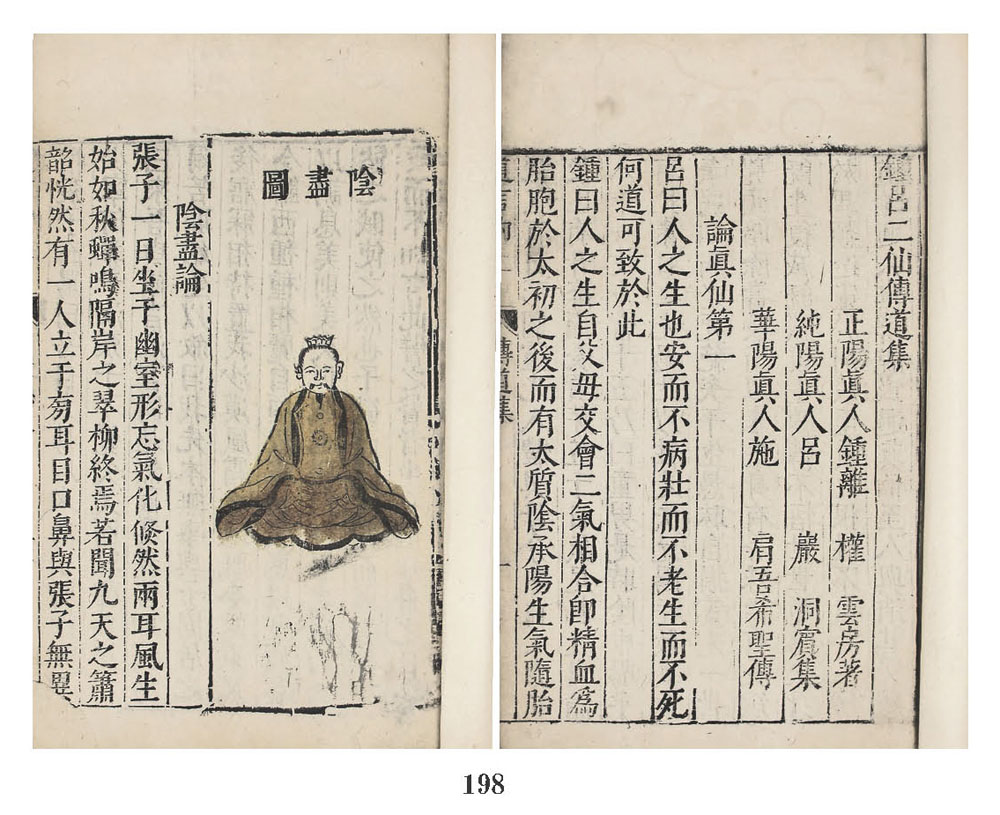 鍾呂二仙傳道集
正陽眞人鍾離 權 雲房著
純陽眞人呂 巖 洞賓集
華陽眞人施 肩吾希聖傳
論眞仙第一
呂曰人之生也安而不病壯而不老生而不死
何道可致於此
鍾曰人之生自父母交會二氣相合卽精血爲
胎胞於太初之後而有太質陰承陽生氣隨胎
傳道集
一
陰盡圖
陰盡論
張子一日坐于幽室形忘氣化倏然兩耳風生
始如秋蟬鳴隔岸之翠柳終焉若聞九天之簫
韶恍然有一人立于旁耳目口鼻與張子無異
198